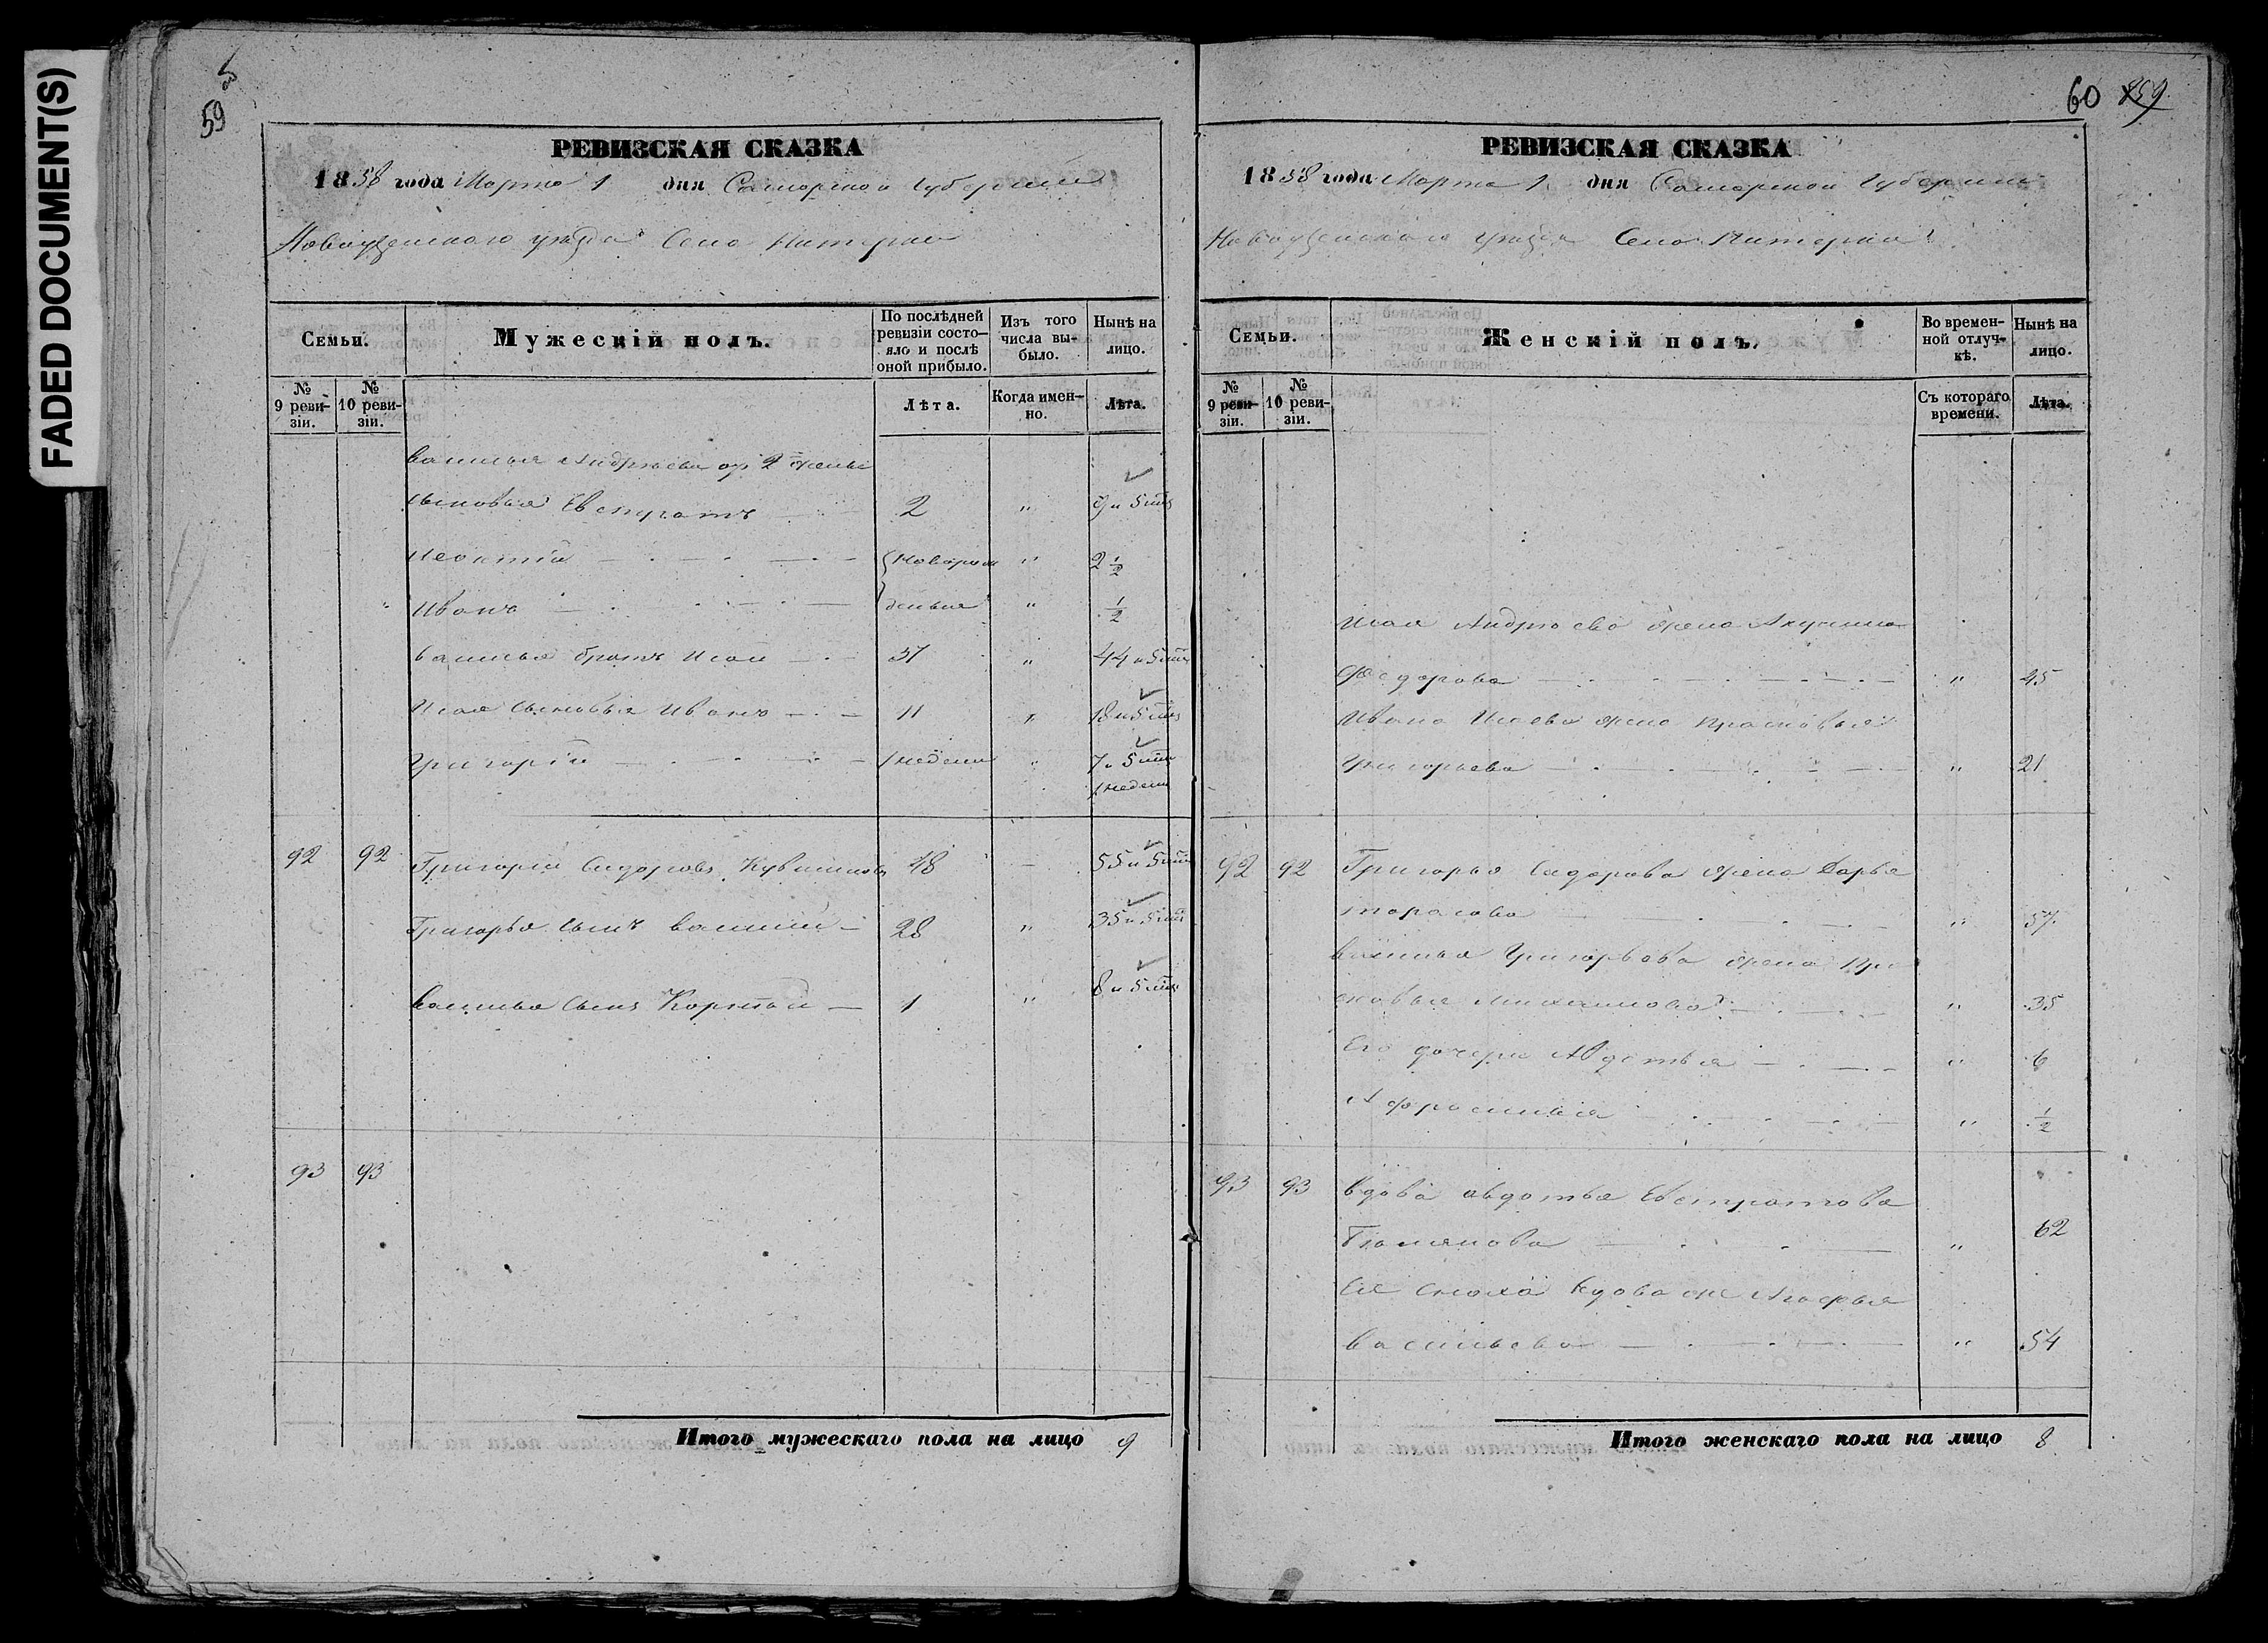 FADED DOCUMENT(S)
59
РЕВИЗСКАЯ СКАЗКА
1858 года Марта 1 дня Самарской Губернии
Новоузенскаго уезда Село Питерка
Семьи.
Мужескій полъ.
По послѣдней ревизіи состо-
яло и послѣ
оной прибыло.
Изъ того
числа вы-
было.
Нынѣ на
лицо.
№
9 реви-
зіи.
№
10 реви-
зіи.
Лѣта.
Когда имен-
но.
Лѣта.
Василья Андреева от 2 жены
сыновья Евстратъ 2 " 9 и 5 м
Леонтій новорож " 2 1/2
Иванъ денные " 1/2
Василья братъ Исай 37 " 44 и 5 м
Исая сыновья Иванъ 11 " 18 и 5 м
Григорій 1 недели " 7 и 5 м
1 недели
92 92 Григорій Сидоровъ 48 55 и 5 м
Григорья сынъ Василий 28 " 35 и 5 м
Василья сынъ Корнѣй 1 " 8 и 5 м
93 93
Итого мужескаго пола на лицо 9
60 859
РЕВИЗСКАЯ СКАЗКА
1858 года Марта 1 дня Самарской Губернии
Новоузенскаго уезда Село Питерка
Семьи.
Женскій полъ.
Во времен-
ной отлуч-
кѣ.
Нынѣ на
лицо.
№
9 реви-
зіи.
№
10 реви-
зіи.
Съ котораго
времени.
Лѣта.
Исая Андреева жена Акулина
Федорова " 45
Ивана Исаева жена Прасковья
Григорьева " 21
92 92 Григорья Сидорова жена Дарья
тарасова " 57
Василья Григорьева жена Пра
сковья Михайлова " 35
Его дочери Авдотья " 6
Афросинья " 1/2
93 93 Вдова авдотья Евстратова
" 62
Ея сноха вдова же Агафья
васильева " 54
Итого женскаго пола на лицо 8